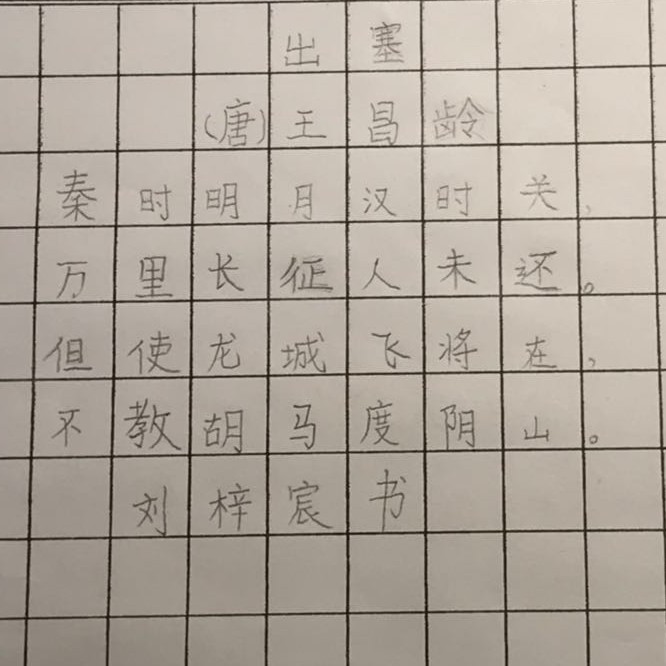 出塞
(唐)王昌龄
秦时明月汉时关,
万里长征人未还。
但使龙城飞将在,
不教胡马度阴山。
刘梓宸书